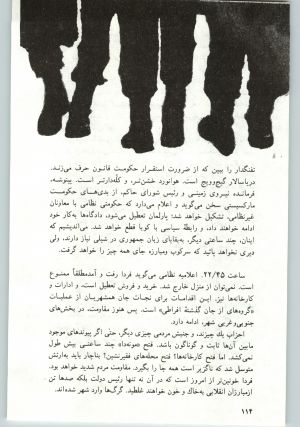 تفنگدار را ببین که از ضرورت استقرار حکومت قانون حرف می‌زند.
دریاسالار گیج‌وویج است. هوانورد خشن‌تر، و کله‌دارتر است. پینوشه،
فرمانده نیروی زمینی و رئیس شورای حاکم، از بدی‌های حکومت
مارکسیستی سخن می‌گوید و اعلام می‌دارد که حکومتی نظامی با معاونان
غیرنظامی، تشکیل خواهد شد؛ پارلمان تعطیل می‌شود، دادگاه‌ها به‌کار خود
ادامه خواهند داد، و رابطهٔ سیاسی با کوبا قطع خواهد شد. می‌اندیشیم که
اینان، چند ساعتی دیگر، به‌بقایای زبان جمهوری در شیلی نیاز دارند، ولی
دیری نخواهد پائید که سرکوب ومبارزه جای همه چیز را خواهد گرفت.
ساعت ۲۲/۴۵. اعلامیه نظامی می‌گوید فردا رفت و آمدمطلقاً ممنوع
است. نمی‌توان از منزل خارج شد. خرید و فروش تعطیل است، و ادارات و
کارخانه‌ها نیز. این اقدامات برای نجات جان همشهریان از عملیات
«گروه‌های از جان گذشتهٔ افراطی» است. پس هنوز مقاومت، در بخش‌های
جنوبی‌وغربی شهر، ادامه دارد.
احزاب یك چیزند، و جنبش مردمی چیزی دیگر، حتی اگر پیوندهای موجود
مابین آن‌ها ثابت و گوناگون باشد. فتح «مونه‌دا» چند ساعتی بیش طول
نمی‌کشد. اما فتح کارخانه‌ها؟ فتح محله‌های فقیرنشین؟ بناچار باید به‌ارتش
متوسل شد که ناگزیر است همه جا را بگیرد. مقاومت مردم شدید خواهد بود.
فردا خونین‌تر از امروز است که در آن نه تنها رئیس دولت بلکه صدها تن
ازمبارزان انقلابی به‌خاك و خون خواهند غلطید. گرگ‌ها وارد شهر شده‌اند.
۱۱۴